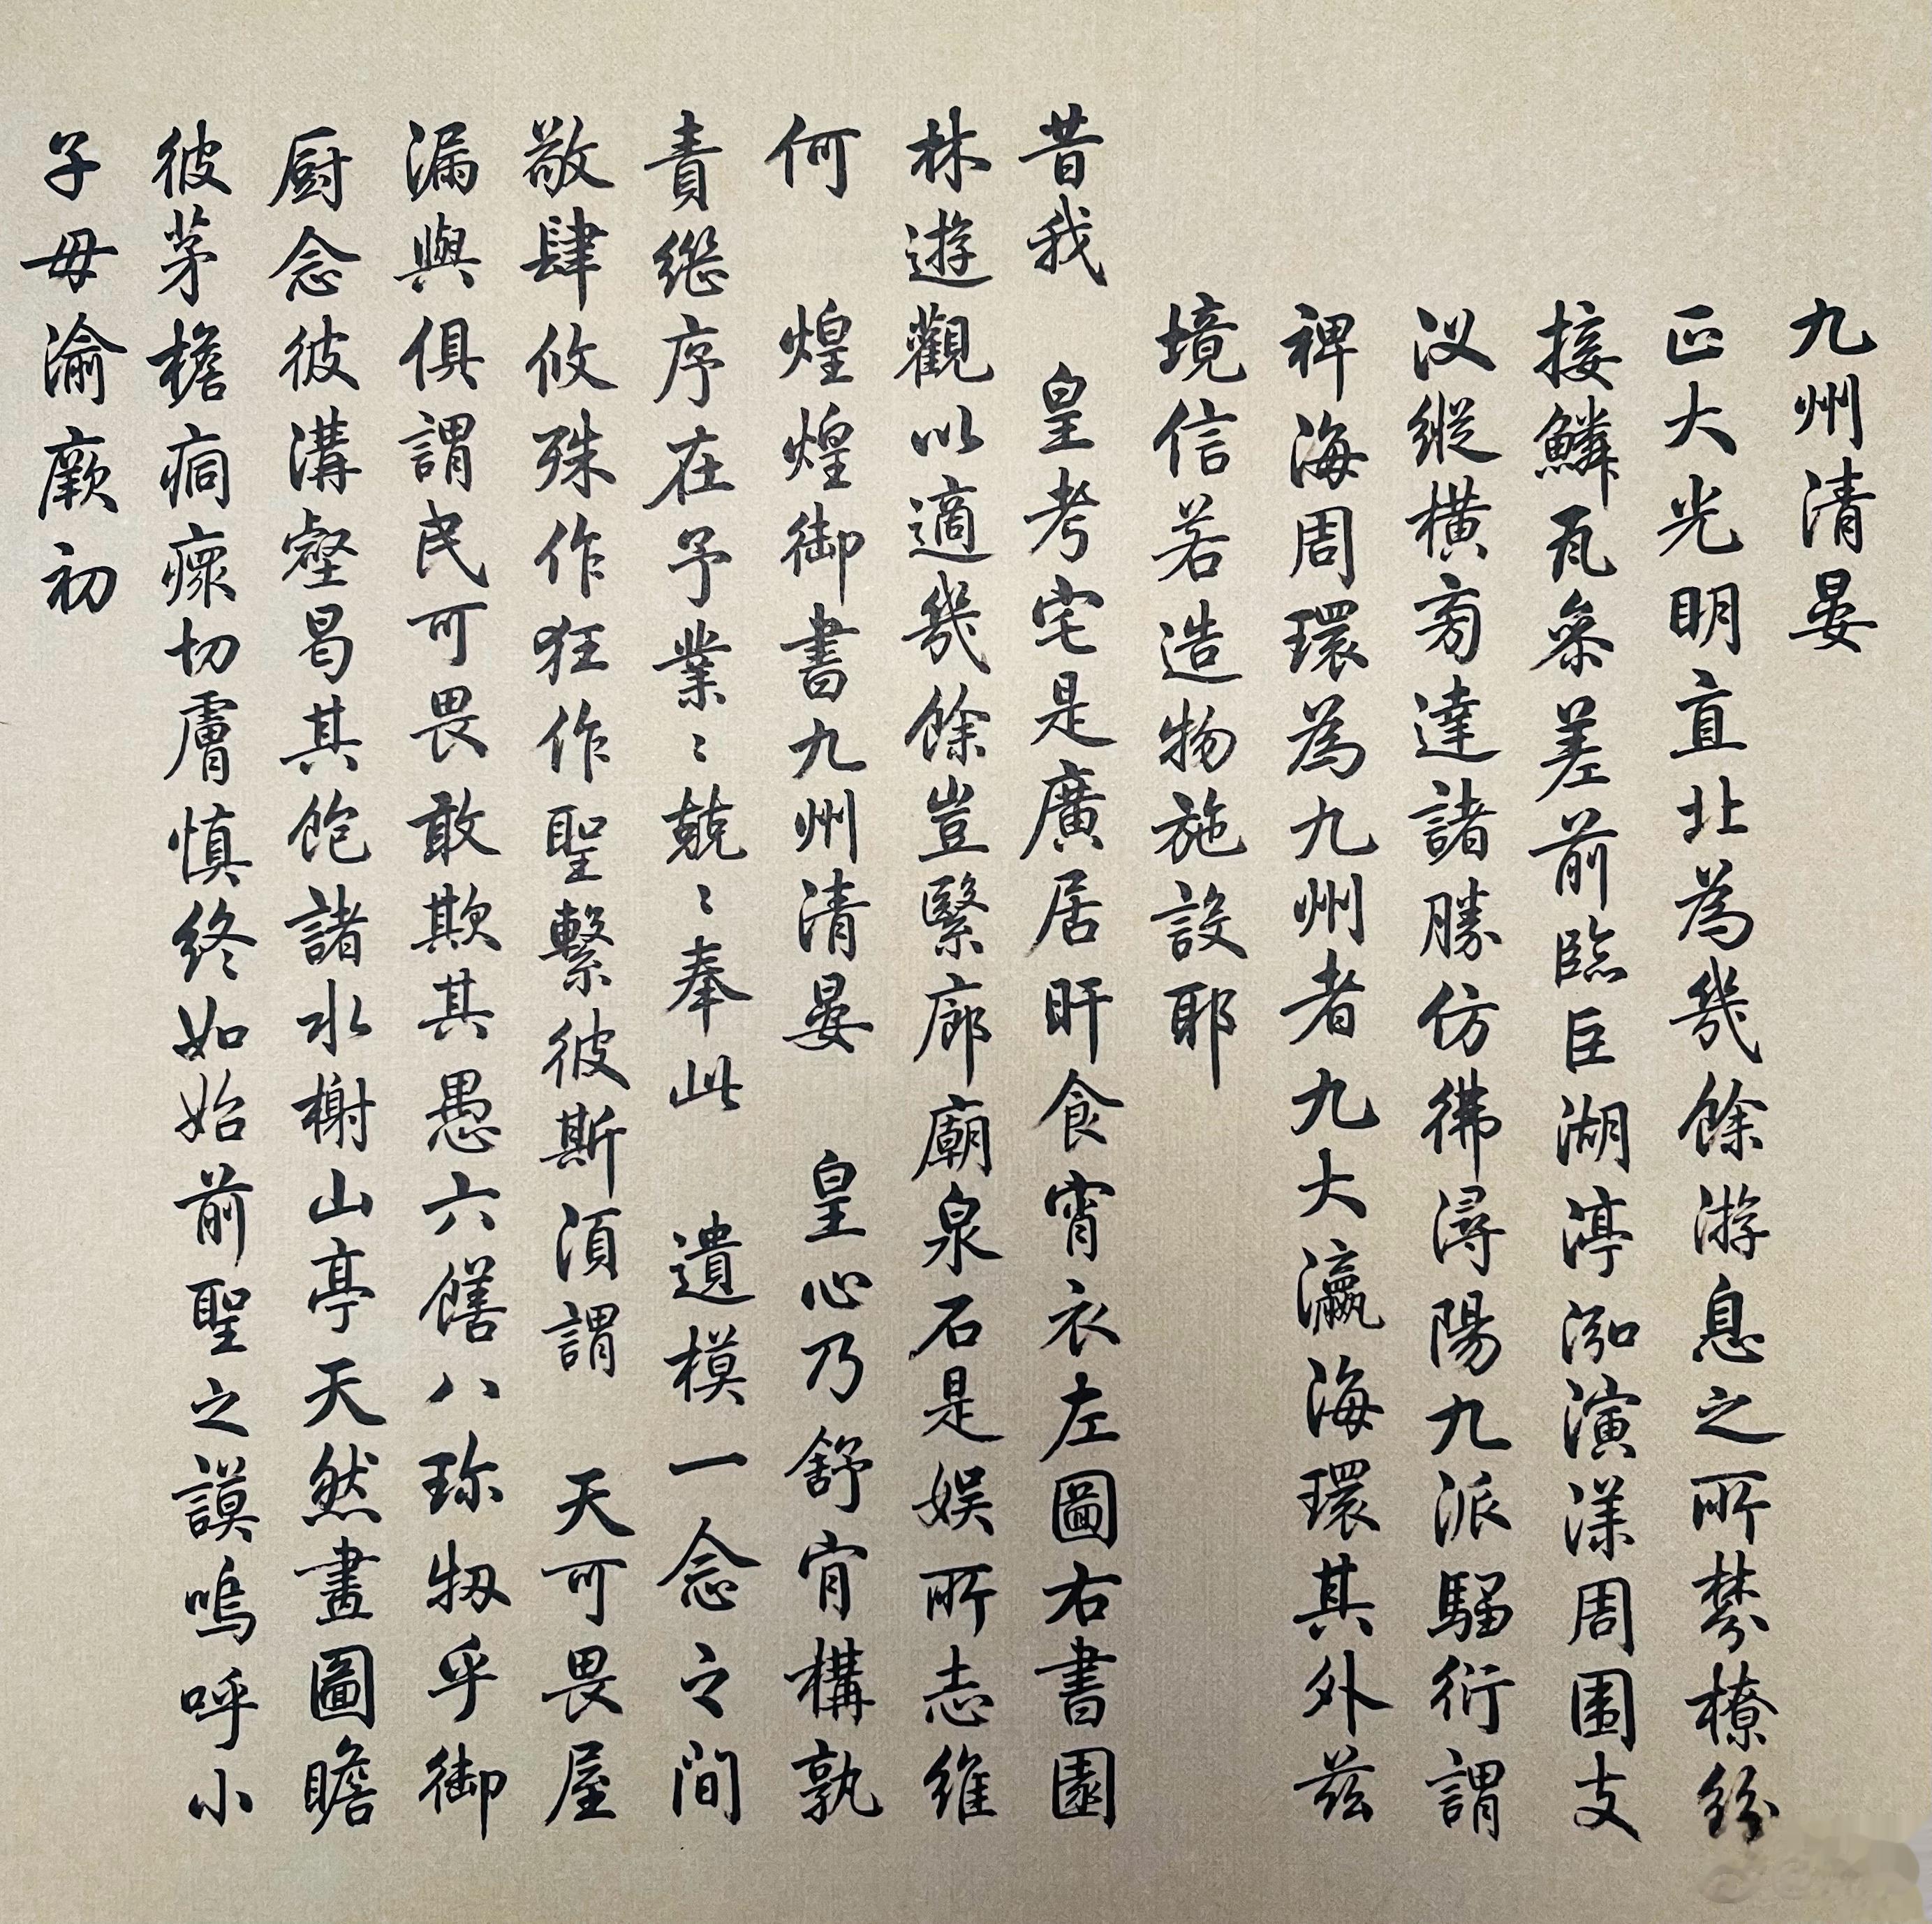 九州清晏
正大光明直北為幾餘游息之所棼橑紛
接鱗瓦參差前臨巨湖渟泓演漾周圍支
汊縱横旁達諸勝仿彿潯陽九派騶衍謂
裨海周環為九州者九大瀛海環其外兹
境信若造物施設耶
昔我 皇考宅是廣居旰食宵衣左圖右書園
林遊觀以適幾餘豈繄廊廟泉石是娱所志維
何 煌煌御書九州清晏 皇心乃舒肯構孰
責繼序在予業〻兢〻奉此 遺模一念之間
敬肆攸殊作狂作聖繫彼斯須謂 天可畏屋
漏與俱謂民可畏敢欺其愚六饍八珎牣乎御
厨念彼溝壑曷其飽諸水榭山亭天然畫圖瞻
彼茅檐痌瘝切膚慎終如始前聖之謨嗚呼小
子毋渝厥初